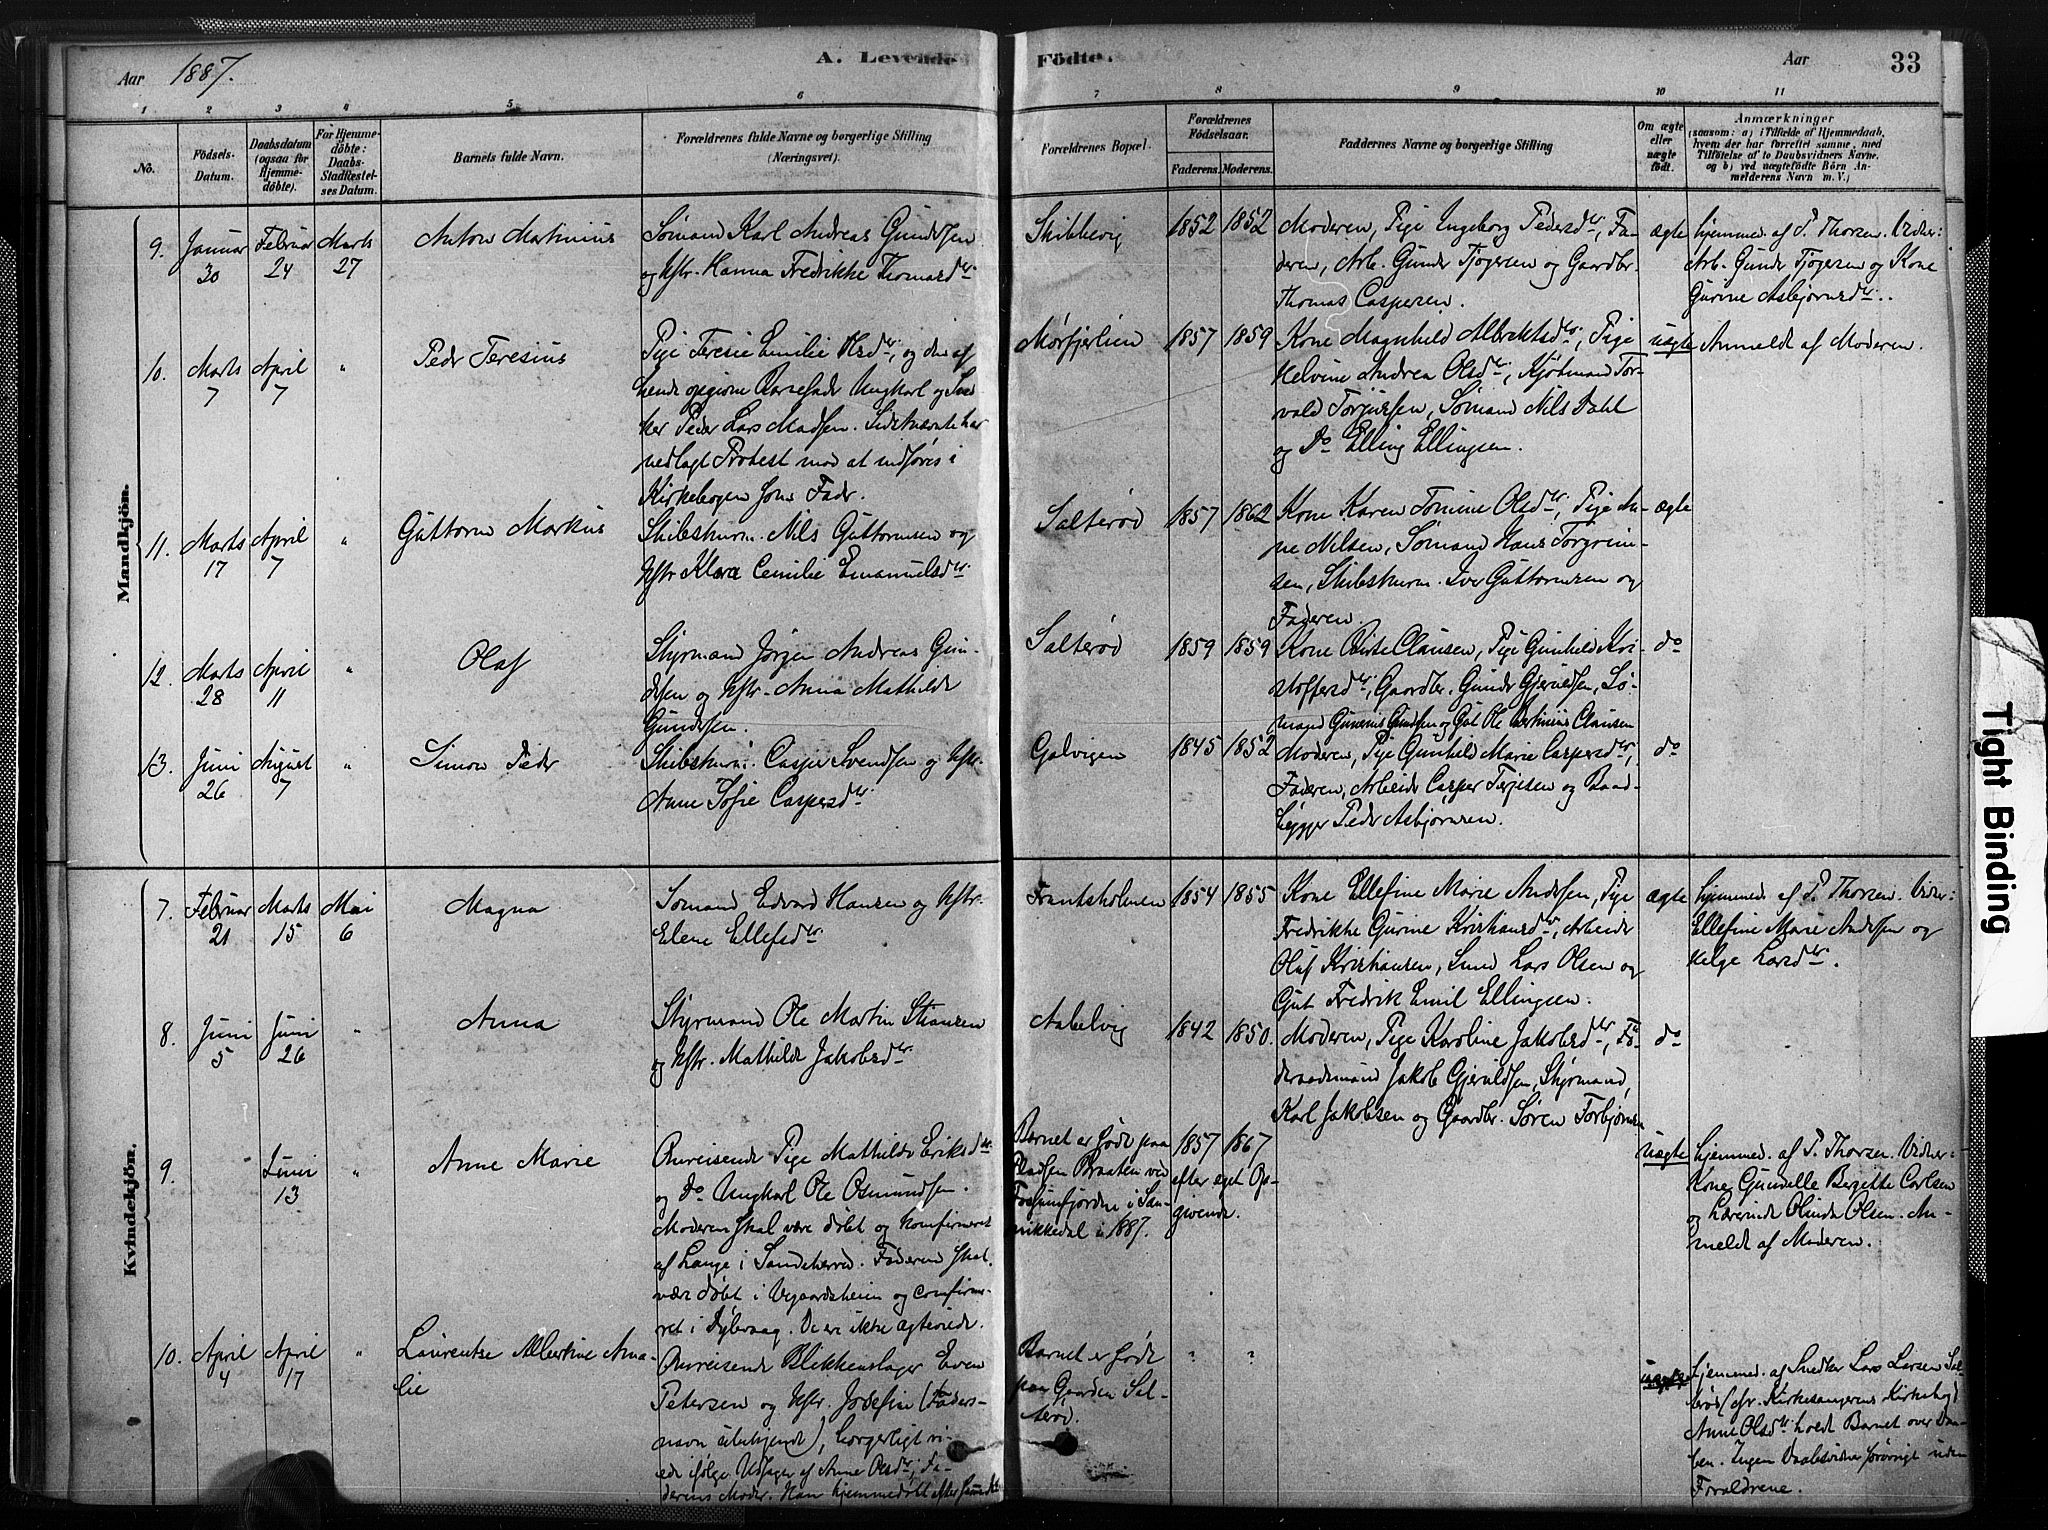 Aar 1887.
A. Levende Födte.
Aar
33
1 2 3 4 5 6 7 8 9 10 11
No.
Födsels-Datum.
Daabsdatum (ogsaa for Hjemme-döbte).
For Hjemme-döbte: Daabs-Stadfæstel-ses Datum.
Barnets fulde Navn.
Forældrenes fulde Navne og borgerlige Stilling (Næringsvei).
Forældrenes Bopæl.
Forældrenes Födselsaar.
Faderens. Moderens.
Faddernes Navne og borgerlige Stilling
Om ægte eller uægte födt.
Anmærkninger
(saasom: a) i Tilfælde af Hjemmedaab, hvem der har forrettet samme, med Tilföielse af to Daabsvidners Navne, og b) ved uægtefödte Börn An-melderens Navn m. V.)
Mandkjön.
9. Januar 30 Februar 24 Marts 27
Anton Martinius
Sømand Karl Andreas Gundersen
og Hstr. Hanna Fredrikke Thomasdtr
Skibbevig
1852 1852
Moderen, Pige Ingeborg Pedersdtr, Fa-
deren, Arb. Gunder Tjøgersen og Gaardbr.
Thomas Caspersen.
ægte
hjemmed. af P. Thorsen. Vidner:
Arb. Gunder Tjøgersen og Kone
Gurine Asbjørnsdtr.
10. Marts 7 April 7 "
Peder Teresius
Pige Teresie Emilie Olsdtr, og den af
hende opgivne Barnefader Ungkarl og Sned
ker Peder Lars Madsen. Sidstnævnte har
nedlagt Protest mod at indføres i
Kirkebogen som Fader.
Mørfjerlien
1857 1859
Kone Magnhild Albriktsdtr, Pige
Helvine Andrea Olsdtr, Kjøbmand Tor-
vald Torjussen, Sømand Nils Dahl
og Do Elling Ellingsen.
uægte
Anmeldt af Moderen.
11. Marts 17 April 7 "
Guttorm Markus
Skibstørm. Nils Guttormsen og
Hstr Klara Cemilie Emanuelsdtr
Salterød
1857 1862
Kone Karen Tomine Olsdtr, Pige An-
ne Nilsen, Sømand Hans Torgrim-
sen, Skibstørm. Iver Guttormsen og
Faderen.
ægte
12. Marts 28 April 11 "
Olaf
Styrmand Jørgen Andreas Gun-
dersen og Hstr. Anna Mathilde
Gundersen.
Salterød
1859 1859
Kone Birte Clausen, Pige Gunhild Kri-
stoffersdtr, Gaardbr. Gunder Gjeruldsen, Sø-
mand Gunerius Gundersen og Gut Ole Bertinius Clausen
do
13. Juni 26 August 7 "
Simon Peder
Casper Svendsen og Hstr.
Anne Sofie Caspersdtr
Galvigen
1845 1852
Moderen, Pige Gunhild Marie Caspersdtr,
Faderen, Arbeider Casper Terjesen og Baad-
bygger Peder Asbjørnsen.
do
Kvindekjön.
7. Februar 21 Marts 15 Mai 6
Magna
Sømand Edvard Hansen og Hstr.
Elene Ellefsdtr
Frantsholmen
1854 1855
Kone Ellefine Marie Andersen, Pige
Fredrikke Gurine Kristiansdtr, Arbeider
Olaf Kristiansen, Smed Lars Olsen og
Gut Fredrik Emil Ellingsen.
ægte
hjemmed. af P. Thorsen. Vidner:
Ellefine Marie Andersen og
Helge Larsdtr.
8. Juni 5 Juni 26 "
Anna
Styrmand Ole Martin Stiansen
og Hstr. Mathilde Jakobsdtr
Aabelvig
1842 1850.
Moderen, Pige Karoline Jakobsdtr, Fø-
deraadsmand Jakob Gjeruldsen, Styrmand
Karl Jakobsen og Gaardbr. Søren Torbjørnsen
do
9. Juni 13 "
Anne Marie
Omreisende Pige Mathilde Eriksdtr
og Do Ungkarl Ole Osmundsen.
Moderen skal være døbt og konfirmeret
af Lange i Sandeherred. Faderen skal
være døbt i Vegaardsheien og confirme-
ret i Dybvaag. De ere ikke ægteviede.
Barnet er født paa
Pladsen Braaten ved
i San-
nikkedal i 1887.
1857 1867
efter eget Op-
givende.
uægte
hjemmed. af P. Thorsen. Vidner:
Kone Gunelle Bergitte Carlsen
og Lærerinde Olinde Olsen. An-
meldt af Moderen.
10. April 4 April 17 "
Laurentse Albertine Ama-
lie
Omreisende Blikkenslager Even
Petersen og Hstr. Josefine (Faders-
navn ubekjendt), borgerligt vi-
ede ifølge Udsagn af Anne Olsdtr, Fa-
derens Moder. Han hjemmedøbt efter
Barnet er født
paa Gaarden Sal-
terød.
" "
hjemmed. af Snedker Lars Larsen Sal-
terød (cfr. Kirkesangerens Kirkebog)
Anne Olsdtr holdt Barnet over Daa-
ben. Ingen Daabsvidner forøvrigt uden
Forældrene.
Tight Binding